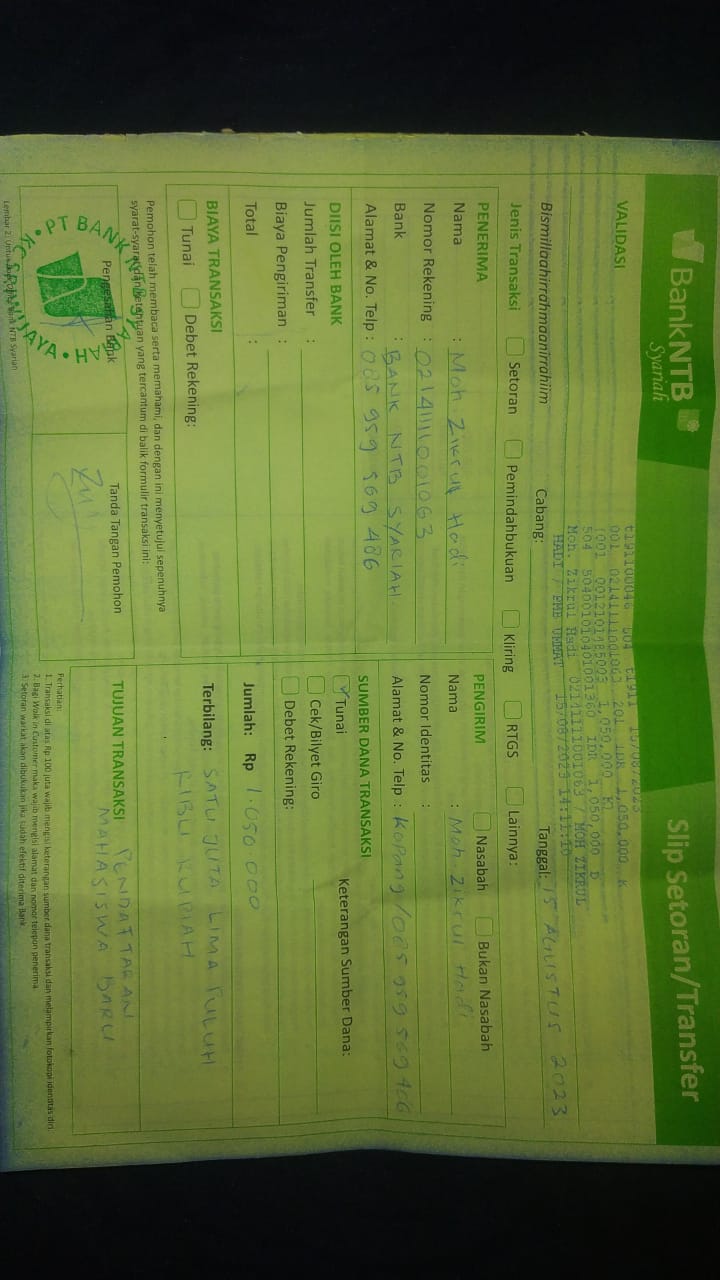 BankNTB
Syariah
Slip Setoran/Transfer
VALIDASI
t191100046 504 t1911 15/08/2023
001 02141111001063 201 IDR 1,050,000 K
504 50400101040001360 IDR 1,050,000 D
Moh. Zikrul Hadi 02141111001063 / MOH ZIKRUL
HADI / PMB UMMAT 15/08/2023 14:11:10
Bismillaahirrahmaanirrahiim
Cabang:
Tanggal: 15 AGUSTUS 2023
Jenis Transaksi
Setoran
Pemindahbukuan
Kliring
RTGS
Lainnya:
PENERIMA
Nama : Moh Zikrul Hadi
Nomor Rekening : 02141111001063
Bank : BANK NTB SYARIAH
Alamat & No. Telp : 085 959 569 486
PENGIRIM
Nasabah
Bukan Nasabah
Nama : Moh Zikrul Hadi
Nomor Identitas :
Alamat & No. Telp : Kopang / 085 959 569 486
DIISI OLEH BANK
Jumlah Transfer :
Biaya Pengiriman :
Total :
SUMBER DANA TRANSAKSI
Tunai
Keterangan Sumber Dana:
Cek/Bilyet Giro
Debet Rekening:
BIAYA TRANSAKSI
Tunai
Debet Rekening:
Jumlah: Rp 1.050 000
Terbilang: SATU JUTA LIMA PULUH
RIBU RUPIAH
Pemohon telah membaca serta memahami, dan dengan ini menyetujui sepenuhnya
syarat-syarat dan ketentuan yang tercantum di balik formulir transaksi ini:
Pengesahan Bank
Tanda Tangan Pemohon
PT BANK NTB SYARIAH
SRIWIJAYA
TUJUAN TRANSAKSI
PENDAFTARAN
MAHASISWA BARU
Perhatian:
1. Transaksi di atas Rp 100 juta wajib mengisi keterangan sumber dana transaksi dan melampirkan fotokopi identitas diri.
2. Bagi Walk in Customer maka wajib mengisi alamat dan nomor telepon penerima
3. Setoran warkat akan dibukukan jika sudah efektif diterima Bank
Lembar 2: Untuk Bank NTB Syariah